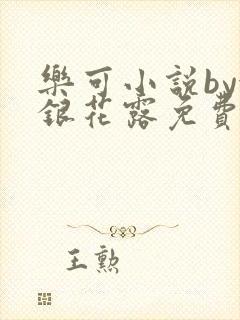 樂可小說by
銀花露免費
王勲